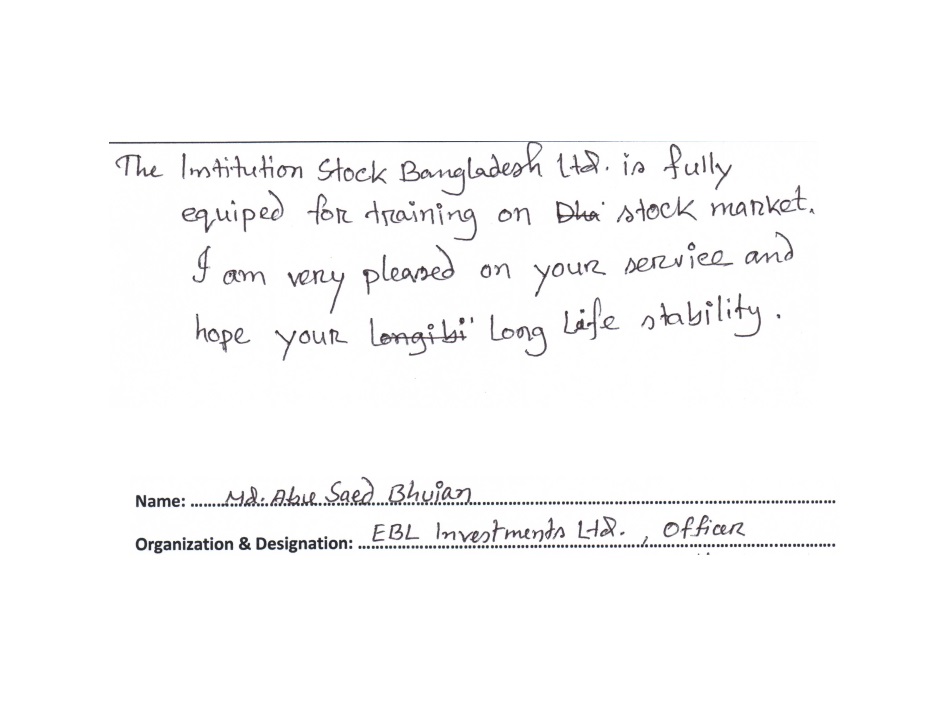 The Institution Stock Bangladesh Ltd. is fully
equiped for training on Dha stock market.
I am very pleased on your service and
hope your longibi long Life stability.
Name: Md. Abu Saed Bhuian
Organization & Designation: EBL Investments Ltd., Officer